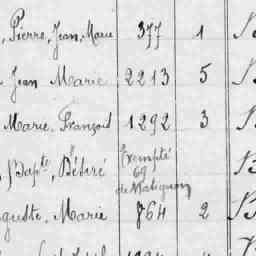 , Pierre, Jean, Marie 377 1
Jean Marie 2213 5
Marie, François 1292 3
Bapte, Désiré Exempté
69
de Matignon
guste, Marie 864 2